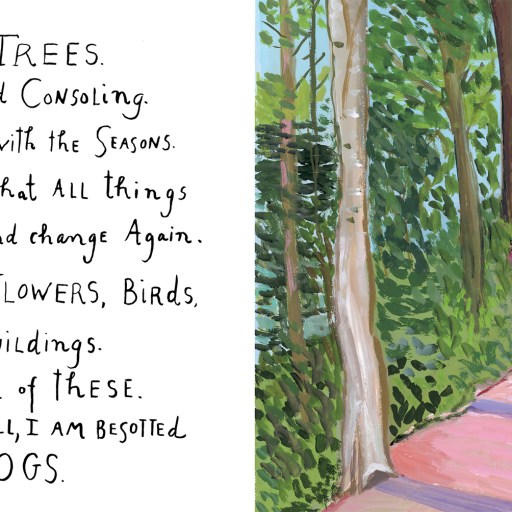 TREES.
CONSOLING.
with the SEASONS.
that ALL things
and change Again.
FLOWERS, BIRDS,
of THESE.
I AM BESOTTED